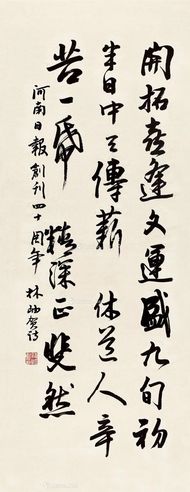 開拓喜逢文運盛九旬初
半日中天傳薪休道人辛
苦一帋精深正斐然
河南日報創刊四十周年 林岫賀詩